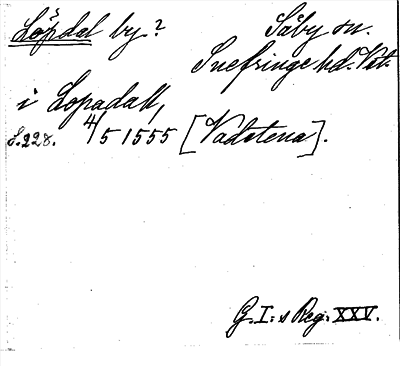 Löpdal by? Säby sn.
Snefringe hd. Vst.
i Lopadall,
S. 228. 4/5 1555 [Vadstena].
G. I:s Reg. XXV.